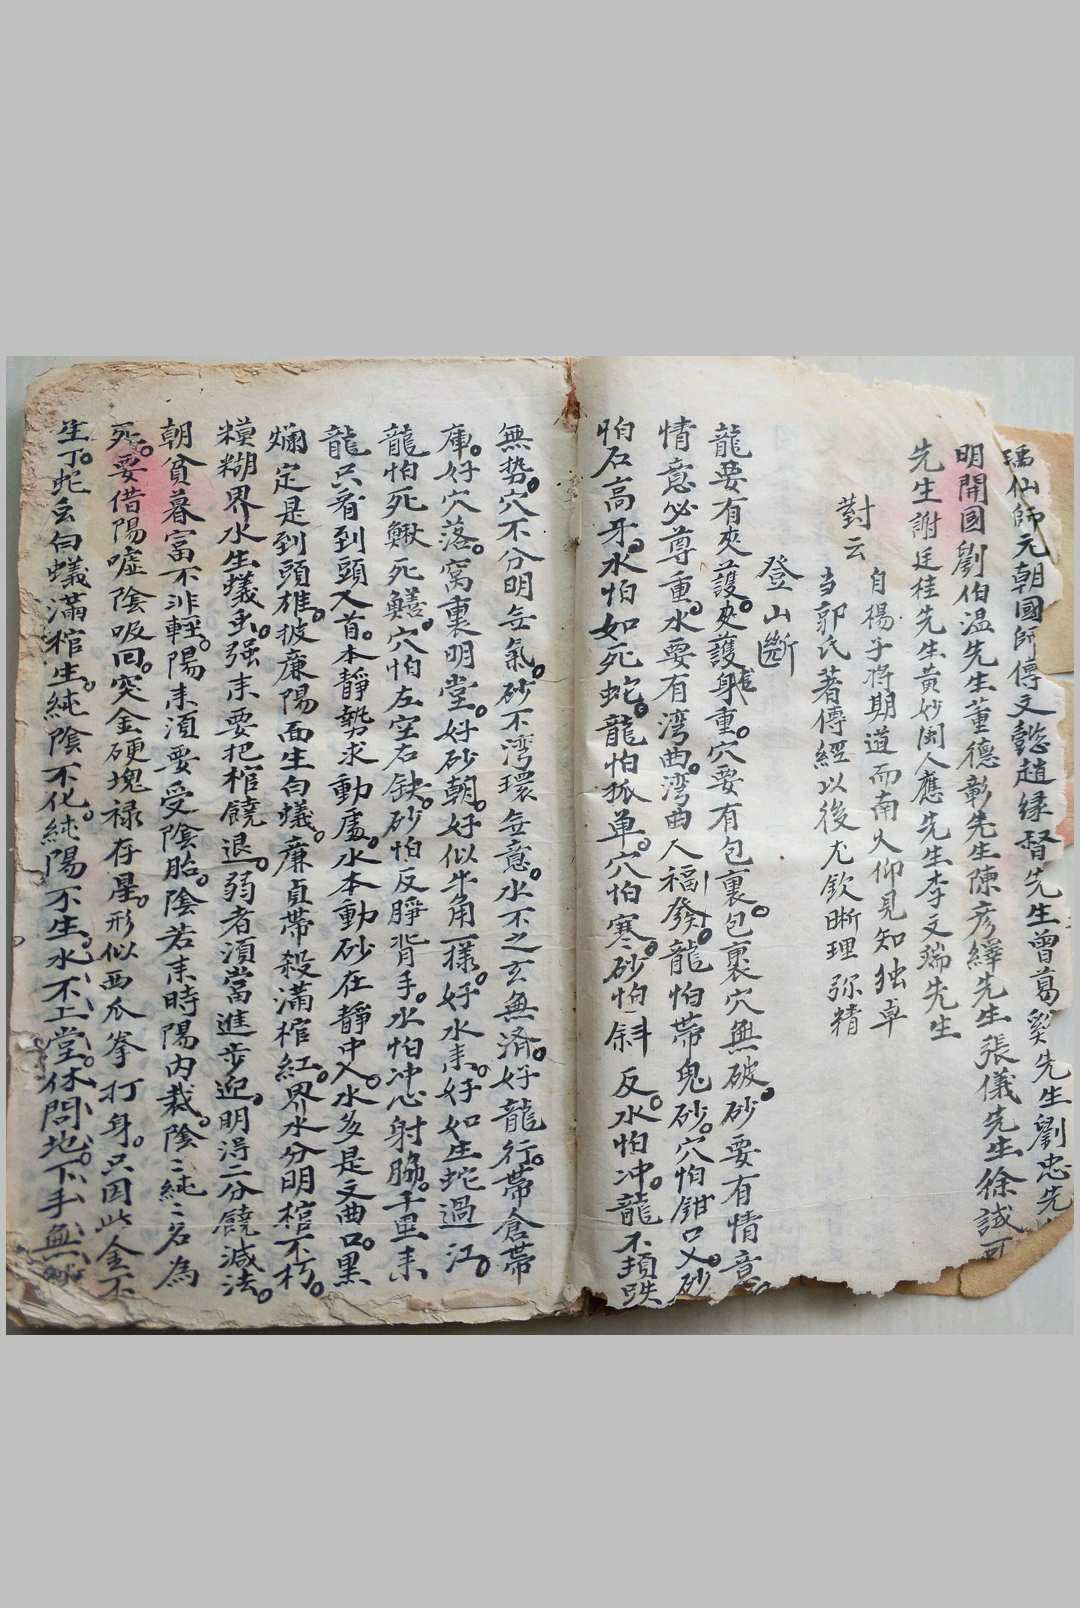 仙師元朝國師傅文懿趙緣督先生曾葛奚先生劉忠先
明開國劉伯温先生董德彰先生陳彥繹先生張儀先生徐試可
先生謝廷桂先生黃妙閩人應先生李文瑞先生
自楊子將期道而南火仰見知独卓
對云
当郭氏著傳經以後尤欽晰理弥精
登山斷
龍要有夾護。夾護龍身重。穴要有包裹。包裹穴無破。砂要有情意。
情意必尊重。水要有湾曲。湾曲人福發。龍怕帶鬼砂。穴怕鉗口叉。砂
怕石高牙。水怕如死蛇。龍怕孤单。穴怕寒。砂怕斜反。水怕冲。龍不頓跌
無势。穴不分明旡氣。砂不湾環旡意。水不之玄無济。好龍行。帶倉帶
庫。好穴落。窩裏明堂。好砂朝。好似牛角一樣。好水耒。好如生蛇過江。
龍怕死鰍死鱔。穴怕左空右缺。砂怕反睜背手。水怕冲心射脇。千里耒
龍只看到頭入首。本靜勢求動處。水本動砂在靜中。入水多是文曲。口黑
爛定是到頭雄。披廉陽面生白蟻。廉貞帶殺滿棺紅。界水分明棺不朽。
糢糊界水生蟻虫。强耒要把棺饒退。弱者須當進步迎。明淂二分饒減法。
朝貧暮富不非輕。陽耒須要受陰胎。陰若耒時陽内裁。陰〻純〻名為
死。要借陽嘘陰吸回。突金硬塊禄存星。形似西瓜拳打身。只因此金不
生丁。蛇幺白蟻滿棺生。純陰不化。純陽不生。水不上堂。休問地。下手無